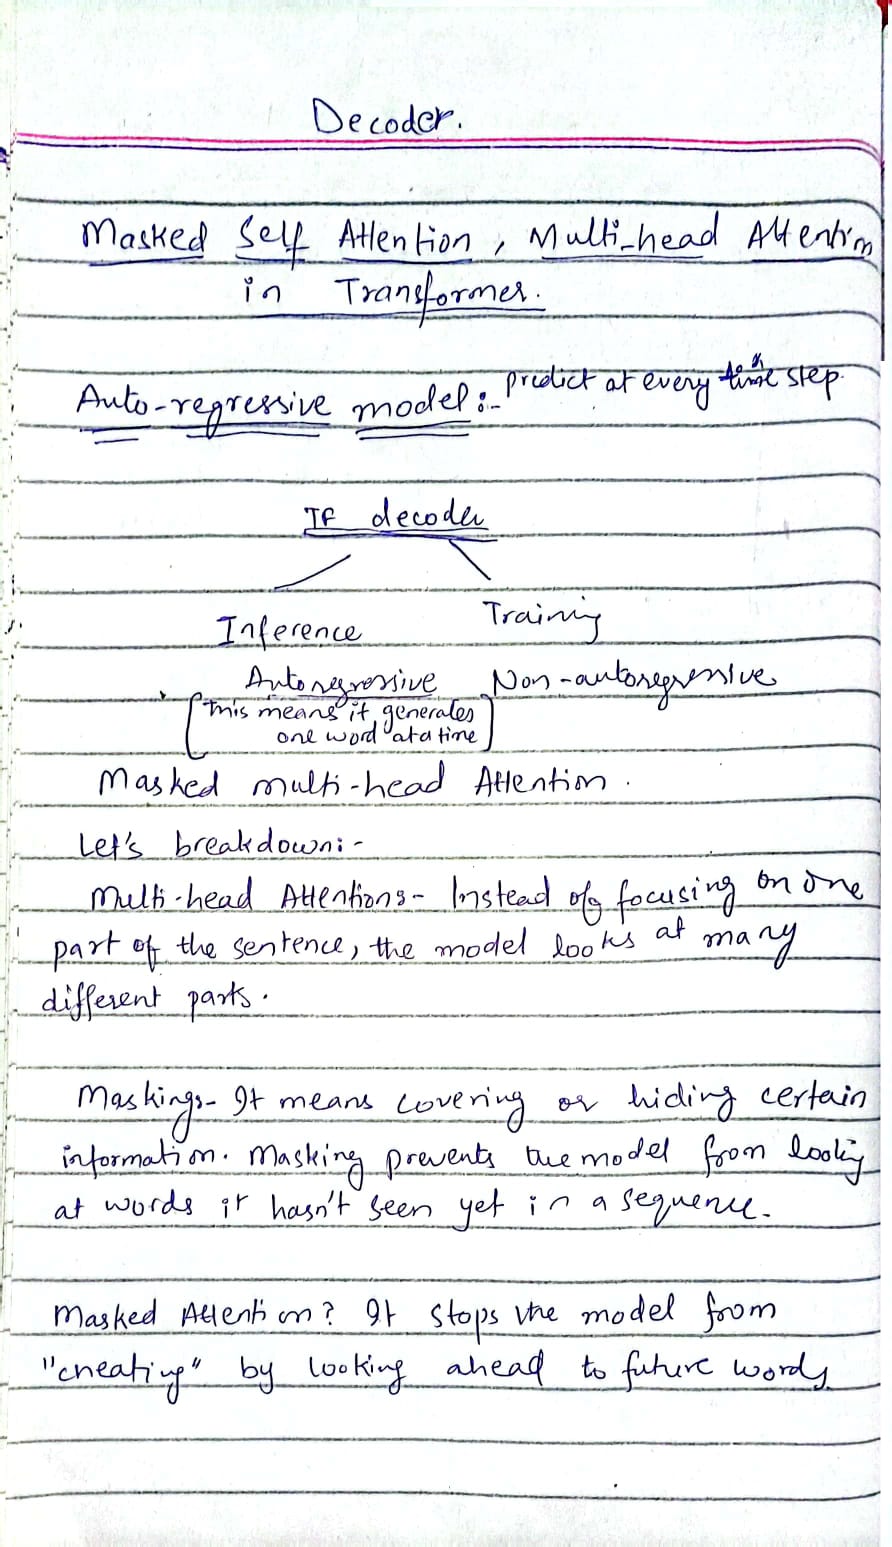 Decoder.
Masked Self Attention, Multi-head Attention
in Transformer.
Auto-regressive model:- predict at every time step.
TF decoder
Inference Training
Autoregressive Non-autoregressive
[This means it generates
one word at a time]
Masked multi-head Attention.
Let's breakdown:-
Multi-head Attention:- Instead of focusing on one
part of the sentence, the model looks at many
different parts.
Masking:- It means covering or hiding certain
information. Masking prevents the model from looking
at words it hasn't seen yet in a sequence.
Masked Attention? It stops the model from
"cheating" by looking ahead to future words.